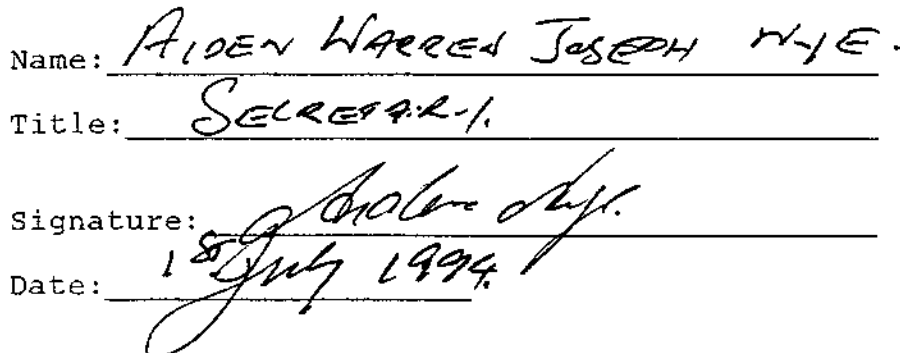 Name: AIDEN WARREN JOSEPH NYE.
Title: SECRETARY.
Signature:
Date: 1st July 1994.